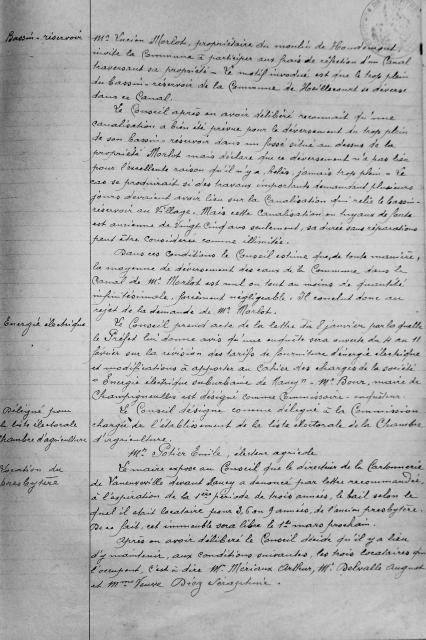 Bassin-réservoir
Mr Lucien Morlot, propriétaire du moulin de Houdemont,
invite la Commune à participer aux frais de réfection d'un Canal
traversant sa propriété - Le motif invoqué est que le trop plein
du bassin-réservoir de la Commune de Heillecourt se déverse
dans ce Canal.
Le Conseil après en avoir délibéré reconnait qu'une
canalisation a bien été prévue pour le déversement du trop plein
de son bassin-réservoir dans un fossé situé au dessus de la
propriété Morlot mais déclare que ce déversement n'a pas lieu
pour l'excellente raison qu'il n'y a, hélas, jamais trop plein - Le
cas se produirait si des travaux importants demandant plusieurs
jours devraient avoir lieu sur la canalisation qui relie le bassin-
réservoir au Village. Mais cette Canalisation en tuyaux de fonte
est ancienne de Vingt Cinq ans seulement, sa durée sans réparations
peut être considérée comme illimitée.
Dans ces Conditions le Conseil estime que, de toute manière,
la moyenne de déversement des eaux de la Commune dans le
Canal de Mr Morlot est nul ou tout au moins de quantité
infinitésimale, forcément négligeable. Il conclut donc au
rejet de la demande de Mr Morlot.
Energie électrique
Le Conseil prend acte de la lettre du 8 janvier par laquelle
le Préfet lui donne avis qu'une enquête sera ouverte du 4 au 11
février sur la révision des tarifs de fourniture d'énergie électrique
et modifications à apporter au Cahier des charges de la société
"Energie électrique suburbaine de Nancy" - Mr Bour, maire de
Champigneulles est désigné comme Commissaire-enquêteur.
Délégué pour
la liste électorale
Chambre d'agriculture
Le Conseil désigne comme délégué à la Commission
chargée de l'établissement de la liste électorale de la Chambre
d'agriculture.
Mr Potier Emile, électeur agricole
Location du
presbytère
Le maire expose au Conseil que le directeur de la Cartonnerie
de Vandoeuvre devant Nancy a dénoncé par lettre recommandée,
à l'expiration de la 1ère période de trois années, le bail selon le
quel il était locataire pour 3, 6 ou 9 années, de l'ancien presbytère.
De ce fait, cet immeuble sera libre le 1er mars prochain.
Après en avoir délibéré le Conseil décide qu'il y a lieu
d'y maintenir, aux conditions suivantes, les trois locataires qui
l'occupent, c'est à dire Mr Mériaux Arthur, Mr Delvalle August
et Mme Veuve Séraphine.